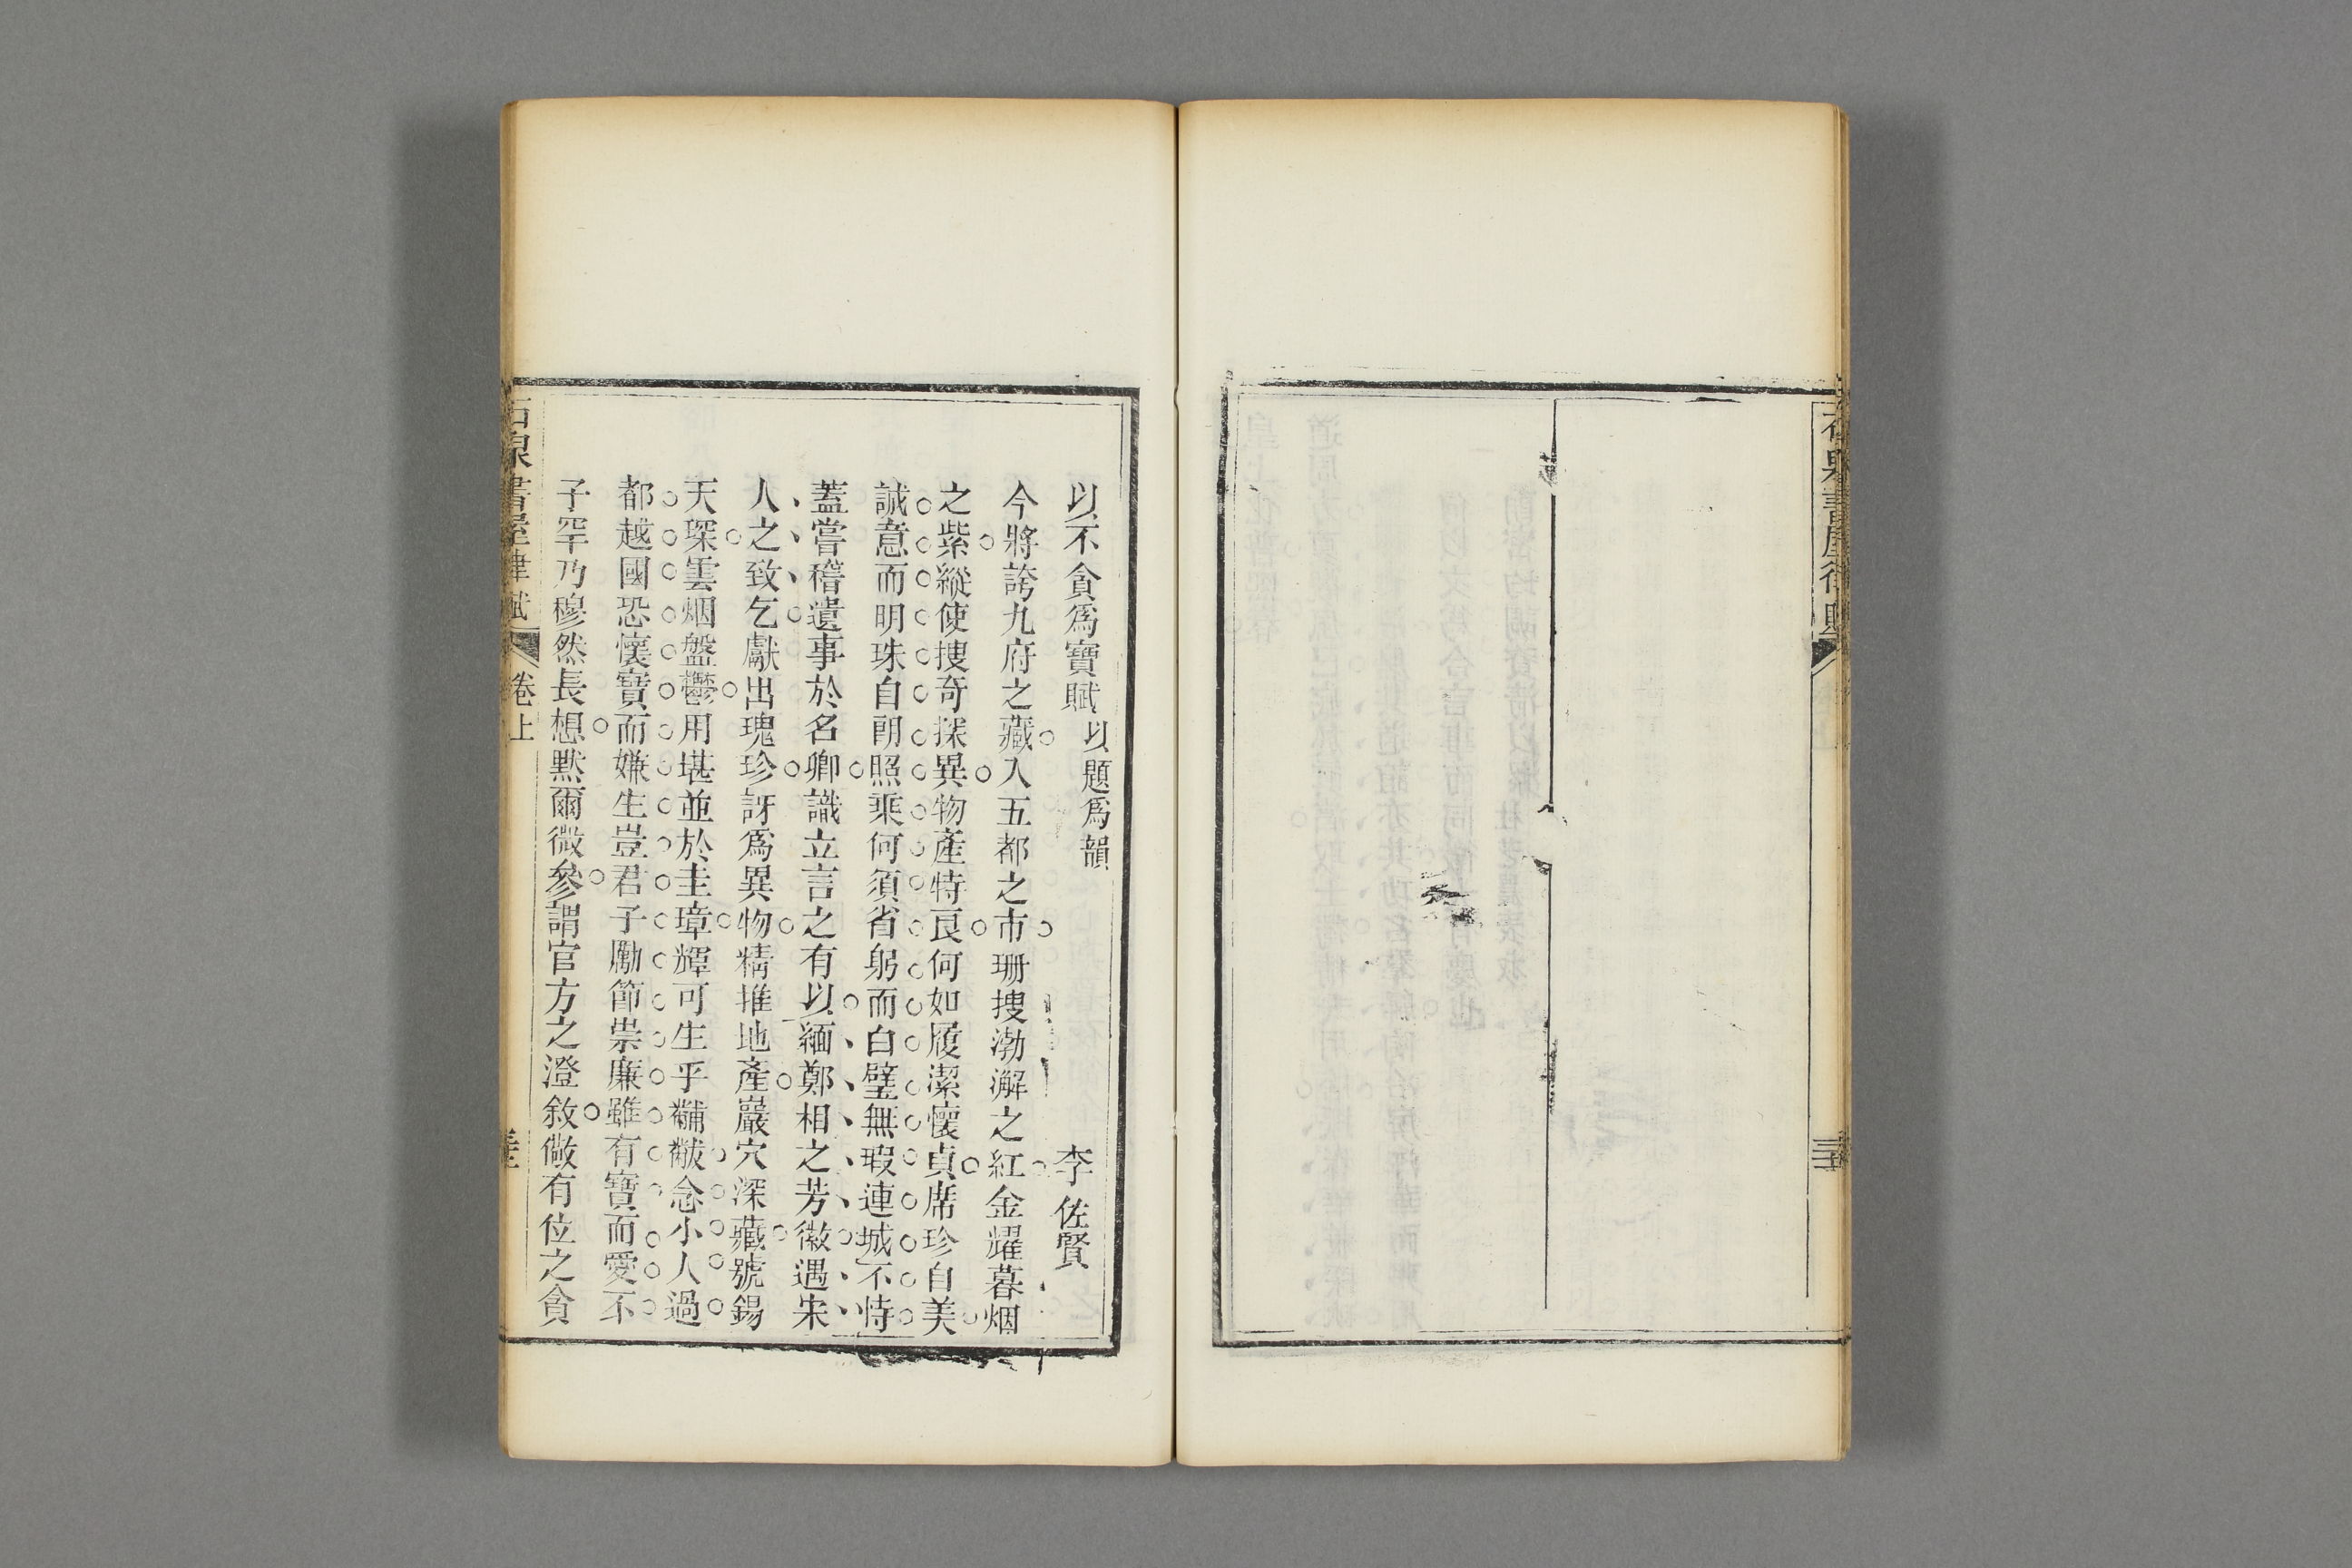 石泉書屋律賦
以不貪爲寶賦 以題爲韻 李佐賢
今將誇九府之藏入五都之市珊捜渤澥之紅金耀暮烟
之紫縱使捜奇採異物產特良何如履潔懷貞席珍自美
誠意而明珠自朗照乘何須省躬而白璧無瑕連城不恃
蓋嘗稽遺事於名卿識立言之有以緬鄭相之芳徽遇宋
人之致乞獻出瑰珍訝爲異物精摧地產巖穴深藏號錫
天琛雲烟盤鬱用堪並於圭璋輝可生乎黼黻念小人過
都越國恐懷寶而嫌生豈君子勵節崇廉雖有寶而愛不
子罕乃穆然長想默爾微參謂官方之澄敘儆有位之貪
石泉書屋律賦 卷上